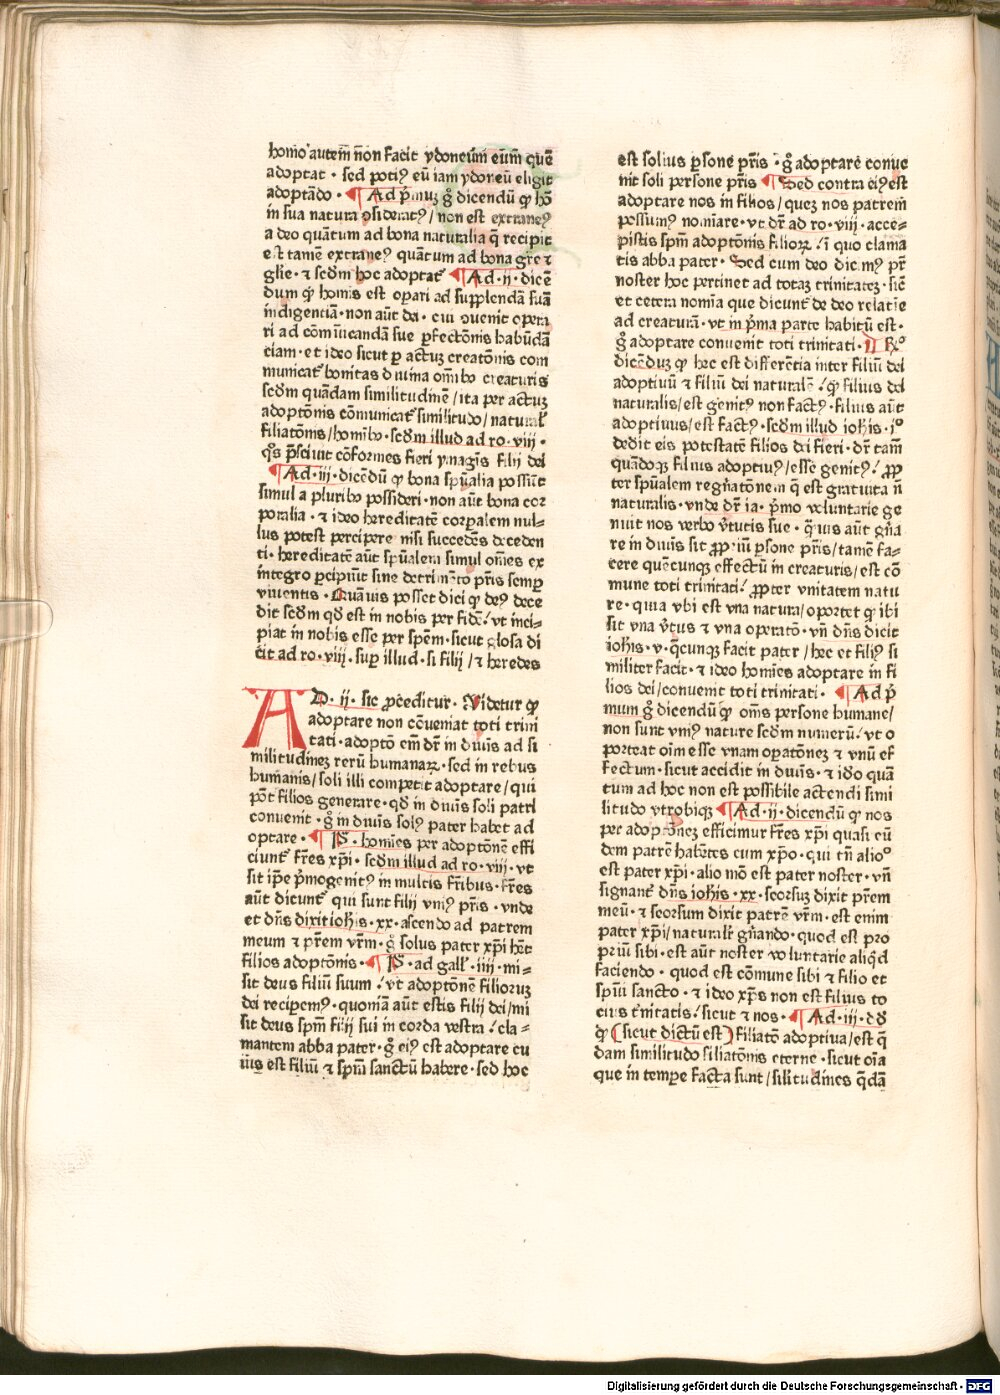 homo autem nō facit ydoneūm eūm quē
adoptat · sed poti⁹ eū iam ydoneū eligit
adoptādo · ¶ Ad p̄muꝫ g̊ dicendū ꝙ hō
in sua natura ꝯsiderat⁹ / non est extrane⁹
a deo quātum ad bona naturalia q̄ recipit
est tamē extrane⁹ quātum ad bona gr̄e ⁊
gl̄ie · ⁊ sc̄dm hoc adoptat᷑ ¶ Ad · ii · dicē
dum ꝙ homīs est oꝑari ad supplendā suā
indigenciā · non aūt dei · cui ꝯuenit opera
ri ad cōmūicandā sue ꝑfectōnis habūdā
ciam · et ideo sicut ꝑ actuꝫ creatōnis com
municat᷑ bonitas diuina omībo creaturis
sc̄dm quādam similitudinē / ita per actuꝫ
adoptōnis cōmunicat᷑ similitudo / natural᷑
filiatōnis / homībo · sc̄dm illud ad ro · viii ·
q̊s p̄sciuit cōformes fieri ymagīs filij dei
¶ Ad · iij · dicēdū ꝙ bona spūalia possūt
simul a pluribo possideri · non aūt bona cor
poralia · ⁊ ideo hereditatē corꝑalem nul=
lus potest percipere nisi succedēs deceden
ti · hereditatē aūt spūalem simul om̄es ex
integro ꝑcipiūt sine detrimēto pr̄is semꝑ
viuentis · Quāuis posset dici ꝙ de⁹ dece
dit sc̄dm qd̄ est in nobis per fidē / vt inci=
piat in nobis esse per spēm · sicut glosa di
cit ad ro · viii · suꝑ illud · si filij / ⁊ heredes
AD · ij · sic ꝓceditur · Videtur ꝙ
adoptare non cōueniat toti trini
tati · adoptō em̄ dr̄ in diuīs ad si
militudineꝫ rerū humanaꝝ · sed in rebus
humanis / soli illi competit adoptare / qui
pōt filios generare · qd̄ in diuīs soli patri
conuenit · g̊ in diuīs sol⁹ pater habet ad
optare · ¶ P̄ · homīes per adoptōnē effi
ciunt᷑ fr̄es xp̄i · sc̄dm illud ad ro · viii · vt
sit ip̄e p̄mogenit⁹ in multis fr̄ibus · fr̄es
aūt dicunt᷑ qui sunt filij vni⁹ pr̄is · vnde
et dn̄s dixit ioh̄is · xx · ascendo ad patrem
meum ⁊ pr̄em vr̄m · g̊ solus pater xp̄i h̄et
filios adoptōnis · ¶ P̄ · ad gall᷑ · iiij · mi=
sit deus filiū suum / vt adoptōnē filioruꝫ
dei recipem⁹ · quoniā aūt estis filij dei / mi
sit deus spm̄ filij sui in corda vestra / cla=
mantem abba pater · g̊ ei⁹ est adoptare cu
iuīs est filiū ⁊ spm̄ sanctū habere · sed hoc
est solius ꝑsone pr̄is · g̊ adoptare conue
nit soli persone pr̄is ¶ Sed contra ei⁹ est
adoptare nos in filios / queꝫ nos patrem
possum⁹ noīare · vt dr̄ ad ro · viii · acce=
pistis spm̄ adoptōnis filioꝝ / ī quo clama
tis abba pater · Sed cum deo dicim⁹ pr̄
noster hoc pertinet ad totaꝫ trinitateꝫ · sic̄
et cetera nomīa que dicunt᷑ de deo relatīe
ad creaturā · vt in p̄ma parte habitū est ·
g̊ adoptare conuenit toti trinitati · ¶ R̊
dicēduꝫ ꝙ hec est differētia inter filiū dei
adoptiuū ⁊ filiū dei naturalē / ꝙ filius dei
naturalis / est genit⁹ non fact⁹ · filius aūt
adoptiuus / est fact⁹ · sc̄dm illud ioh̄is · i°
dedit eis potestatē filios dei fieri · dr̄ tam̄
quādoqꝫ filius adoptiu⁹ / esse genit⁹ / ꝓp
ter spūalem regn̄atōnem q̄ est gratuita n̄
naturalis · vnde dr̄ ia · p̄mo voluntarie ge
nuit nos verbo v̄tutis sue · q̄uis aūt gn̄a
re in diuīs sit ꝓpriū ꝑsone pr̄is / tamē fa=
cere quēcunqꝫ effectū in creaturis / est cō
mune toti trinitati / ꝓpter vnitatem natu
re · quia vbi est vna natura / oportet ꝙ ibi
sit vna v̄tus ⁊ vna operatō · vn̄ dn̄s dicit
ioh̄is · v · q̄cunqꝫ facit pater / hec et fili⁹ si
militer facit · ⁊ ideo homīes adoptare in fi
lios dei / conuenit toti trinitati · ¶ Ad p̄
mum g̊ dicendū ꝙ om̄s persone humane /
non sunt vni⁹ nature sc̄dm numerū / vt o
porteat oīm esse vnam oꝑatōneꝫ ⁊ vnū ef
fectum · sicut accidit in diuīs · ⁊ idō quā
tum ad hoc non est possibile actendi simi
litudo vtrobiqꝫ ¶ Ad · ij · dicendū ꝙ nos
per adoptōneꝫ efficimur fr̄es xp̄i quasi eū
dem patrē habētes cum xp̄o · qui tn̄ alio°
est pater xp̄i · alio mō est pater noster · vn̄
signant᷑ dn̄s ioh̄is · xx · seorsuꝫ dixit pr̄em
meū · ⁊ seorsum dixit patrē vr̄m · est enim
pater xp̄i / natural᷑r gn̄ando · quod est pro
priū sibi · est aūt noster voluntarie aliq̄d
faciendo · quod est cōmune sibi ⁊ filio et
spūi sancto · ⁊ ideo xp̄s non est filius to
cius t̄nitatis / sicut ⁊ nos · ¶ Ad · iij · dd̄
ꝙ (sicut dictū est) filiatō adoptiua / est q̄
dam similitudo filiatōnis eterne · sicut oīa
que in tempe facta sunt / silitudines q̄dā
Digitalisierung gefördert durch die Deutsche Forschungsgemeinschaft - DFG